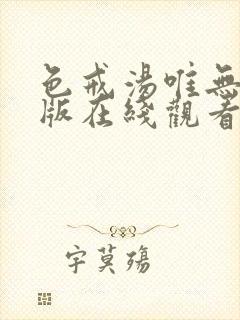 色戒湯唯無
版在綫觀看
字莫殤